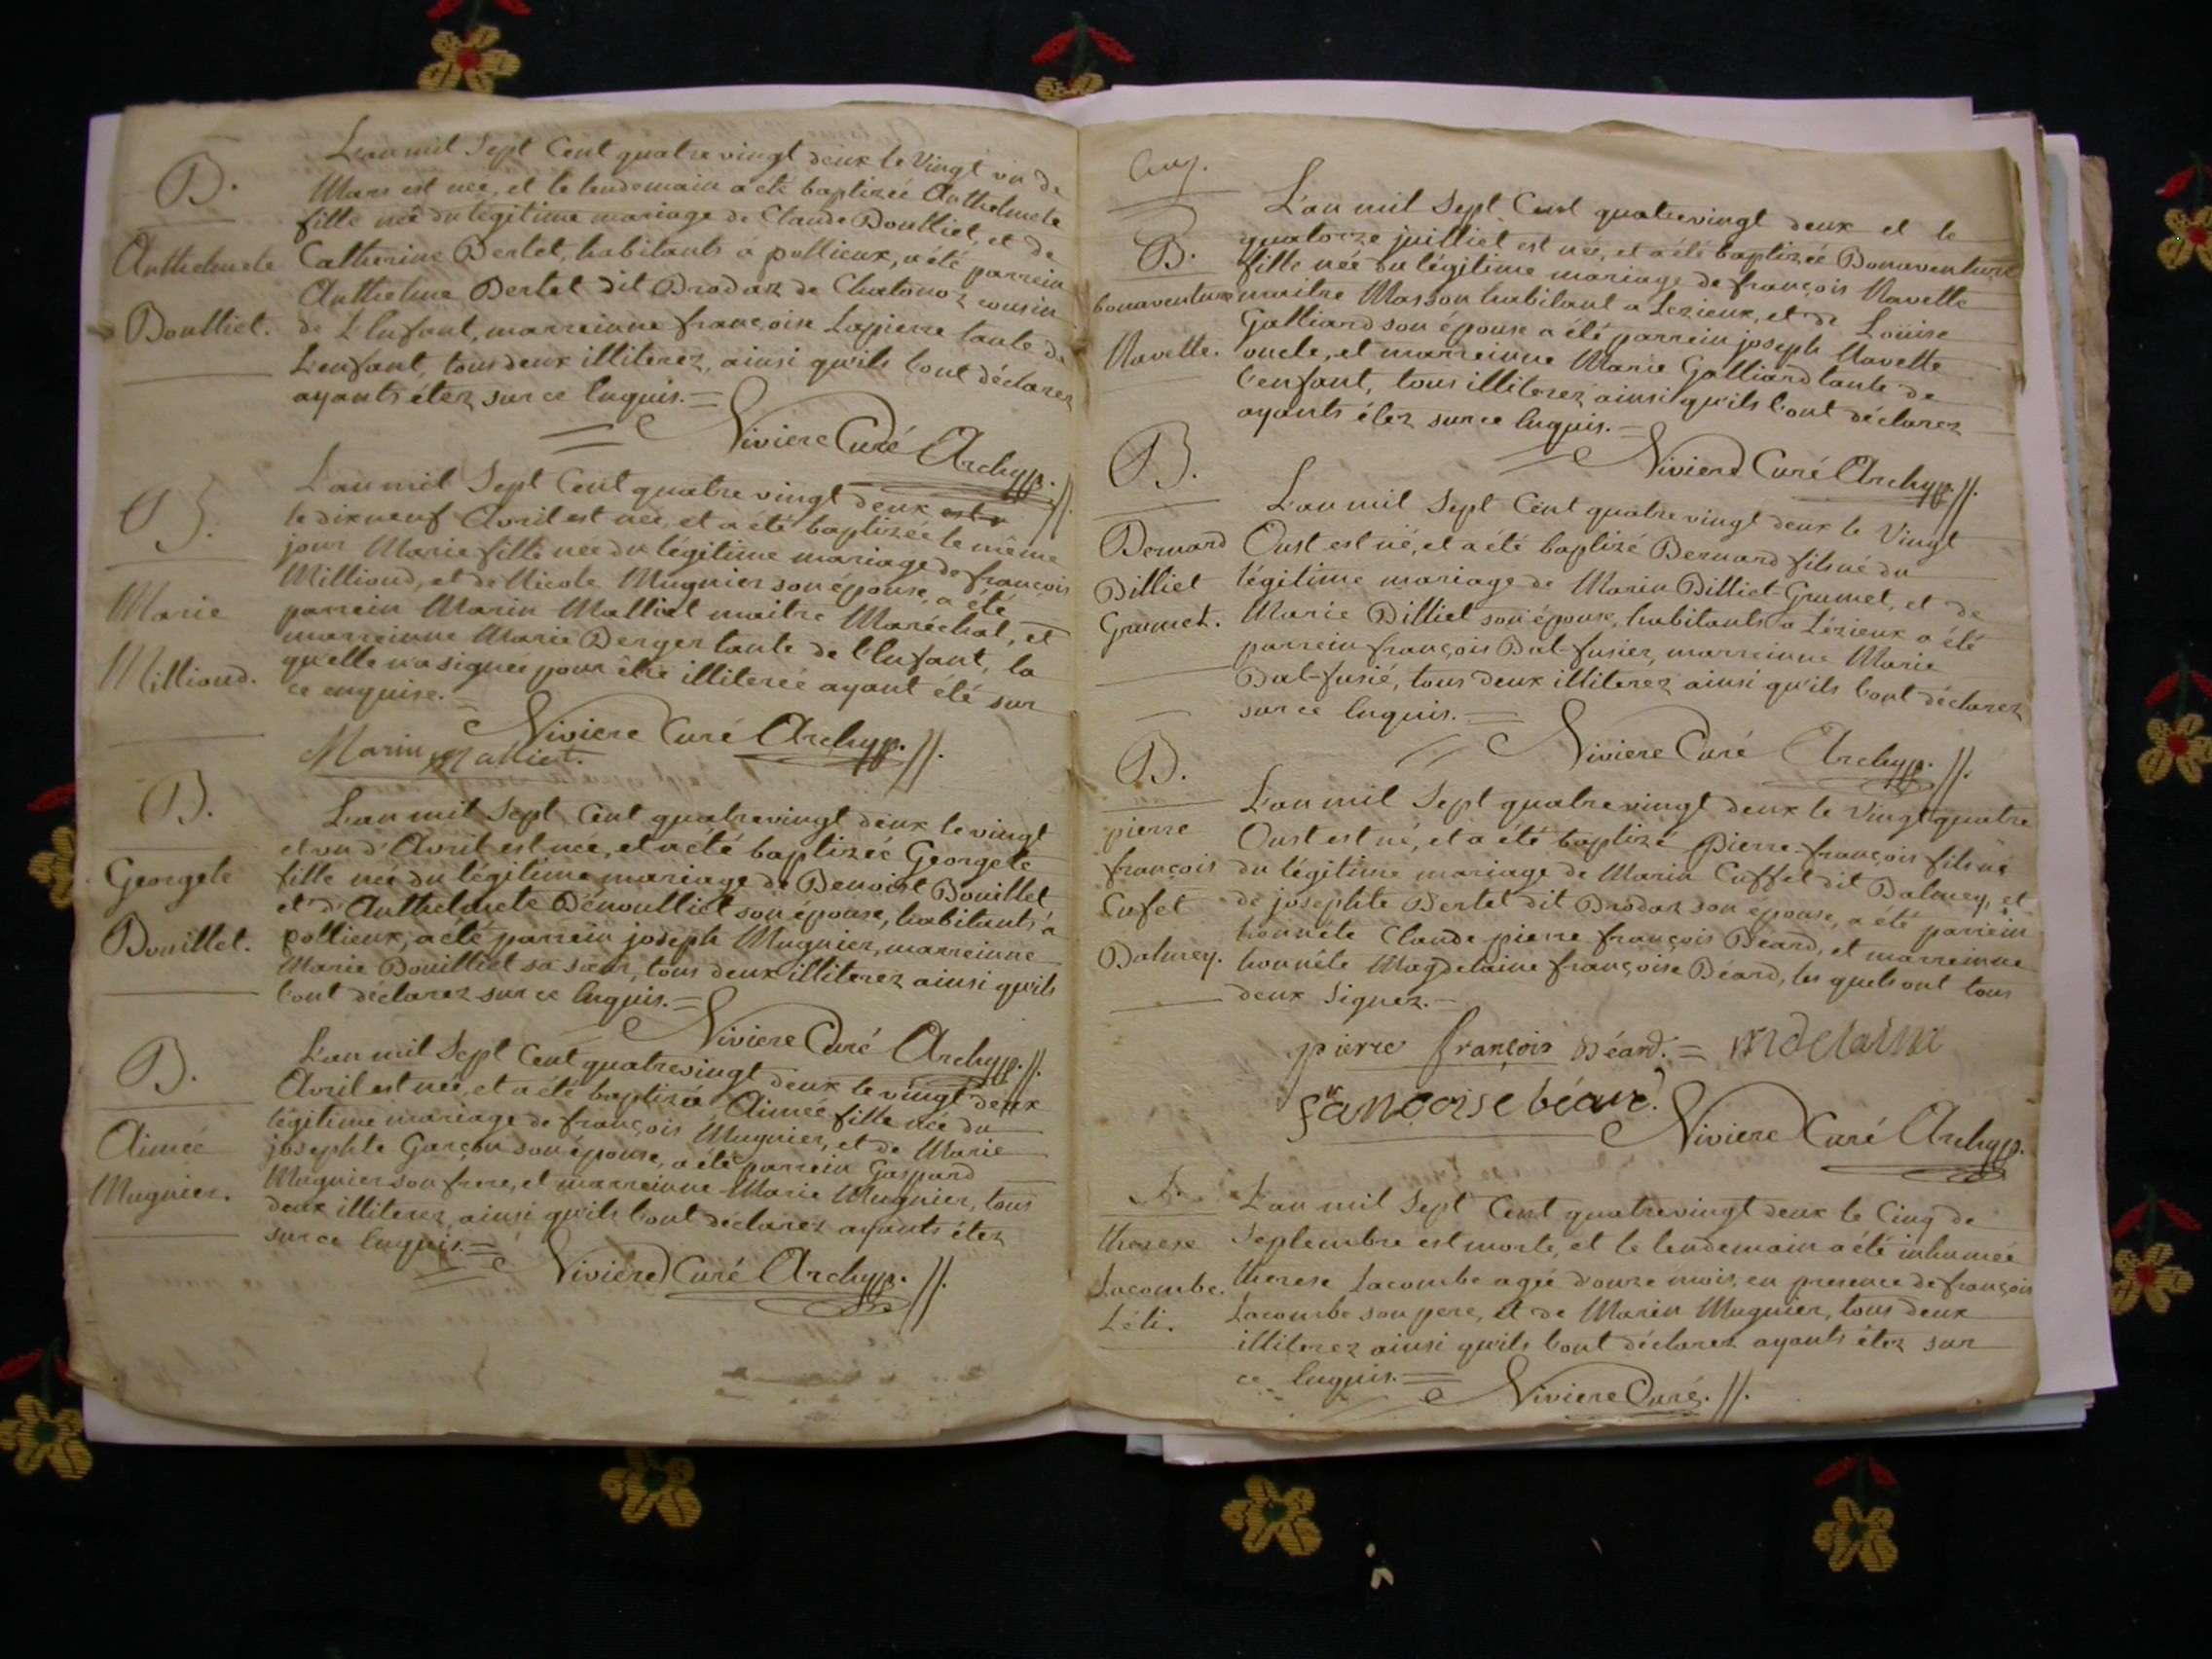 B.
Anthelmete
Boulliet.
L'an mil Sept Cent quatre vingt deux le Vingt un de
Mars est née, et le lendemain a eté baptizée Anthelmete
fille née du légitime mariage de Claude Boulliet, et de
Catherine Bertet, habitants à pollieux, a été parrein
Anthelme Bertet dit Brodaz de Chatonoz cousin
de L'Enfant, marreinne françoise Lapierre tante de
L'enfant, tous deux illiterez, ainsi qu'ils l'ont déclarez
ayants étez sur ce Enquis. =
Niviere Curé Archyp. //.
B.
Marie
Milliond.
L'an mil Sept Cent quatre vingt deux
le dixneuf Avril est née, et a été baptizée le même
jour Marie fille née du légitime mariage de françois
Milliond, et de Nicole Mugnier son épouse, a été
parrein Marin Malliet maitre Maréchal, et
marreinne Marie Berger tante de l'Enfant, la
quelle n'a signée pour être illiterée ayant été sur
ce enquise. =
Niviere Curé Archyp. //.
Marin Malliet.
B.
Georgete
Bouillet.
L'an mil Sept Cent quatrevingt deux le vingt
et un d'Avril est née, et a été baptizée Georgete
fille née du légitime mariage de Benoist Bouillet
et d'Anthelmete Benoulliet son épouse, habitants à
pollieux, a été parrein joseph Mugnier, marreinne
Marie Bouilliet sa sœur, tous deux illiterez ainsi qu'ils
l'ont déclarez sur ce Enquis. =
Niviere Curé Archyp. //.
B.
Aimée
Mugnier.
L'an mil Sept Cent quatrevingt deux le vingt deux
Avril est née, et a été baptizée Aimée fille née du
légitime mariage de françois Mugnier, et de Marie
josephte Garçon son épouse, a été parrein Gaspard
Mugnier son frere, et marreinne Marie Mugnier, tous
deux illiterez, ainsi qu'ils l'ont déclarez ayants étez
sur ce Enquis. =
Niviere Curé Archyp. //.
Cinq.
B.
bonaventure
Navette.
L'an mil Sept Cent quatrevingt deux et le
quatorze juilliet est née, et a été baptizée Bonaventure
fille née du légitime mariage de françois Navette
maitre Masson habitant a Lezieux, et de Loüise
Galliard son épouse a été parrein joseph Navette
oncle, et marreinne Marie Galliard tante de
l'enfant, tous illiterez ainsi qu'ils l'ont déclarez
ayants étez sur ce Enquis. =
Niviere Curé Archyp. //.
B.
Bernard
Billiet
Grumet.
L'an mil Sept Cent quatre vingt deux le Vingt
Oust est né, et a été baptizé Bernard fils né du
légitime mariage de Marin Billiet-Grumet, et de
Marie Billiet son épouse, habitants a Lézieux a été
parrein françois Bal-fusier, marreinne Marie
Bal-fusié, tous deux illiterez ainsi qu'ils l'ont déclarez
sur ce Enquis. =
Niviere Curé Archyp. //.
B.
pierre
françois
Cufet
Balmey.
L'an mil Sept quatrevingt deux le Vingtquatre
Oust est né, et a été baptizé Pierre-françois fils né
du légitime mariage de Marin Cuffet dit Balmey, et
de josephte Bertet dit Brodaz son épouse, a été parrein
honnête Claude pierre françois Béard, et marreinne
honnête Magdelaine françoise Béard, les quels ont tous
deux Signez. =
pierre françois Béard. = mdelaine
françoise béard.
Niviere Curé Archyp.
therese
Lacombe.
Léti.
L'an mil Sept Cent quatrevingt deux le Cinq de
Septembre est morte, et le lendemain a été inhumée
therese Lacombe agée d'onze mois, en presence de françois
Lacombe son pere, et de Marin Mugnier, tous deux
illiterez ainsi qu'ils l'ont déclarez ayants étez sur
ce Enquis. =
Niviere Curé. //.